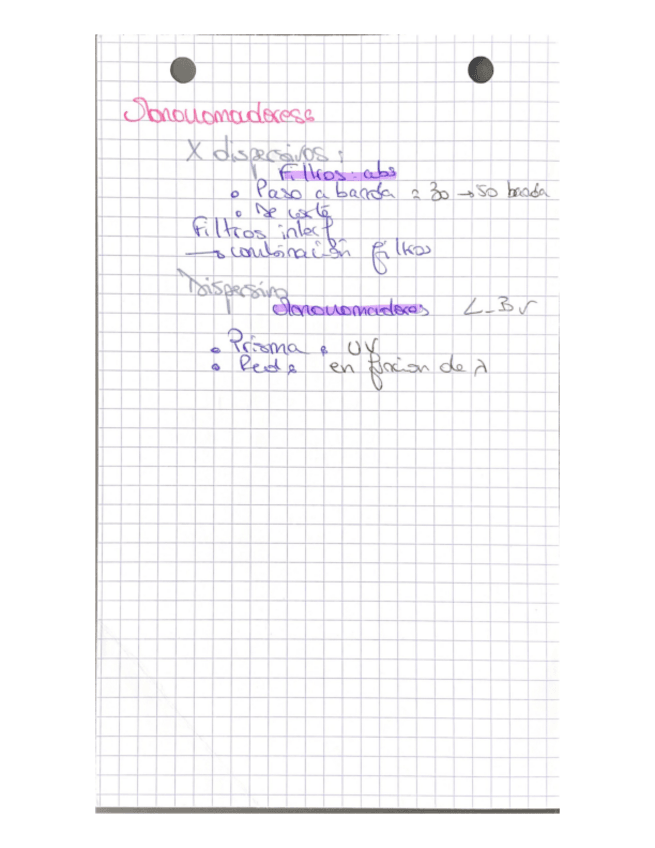 Monocromadores:
X dispersivos:
Filtros: abs
• Paso a banda: 30 → 50 banda
• De corte
Filtros interf
→ combinación filtros
Dispersivo
Monocromadores
• Prisma: UV
• Red: en función de λ